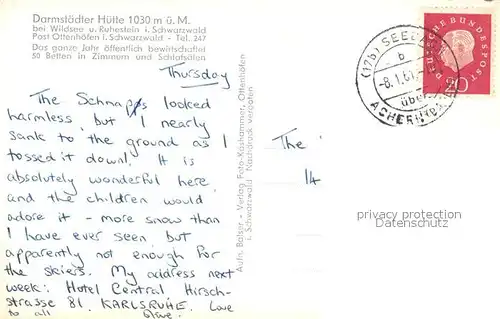 Darmstädter Hütte 1030 m ü. M.
bei Wildsee u. Ruhestein i. Schwarzwald
Post Ottenhöfen i. Schwarzwald - Tel. 247
Das ganze Jahr öffentlich bewirtschaftet
50 Betten in Zimmern und Schlafsälen
Thursday
The Schnaps looked
harmless but I nearly
sank to the ground as I
tossed it down! It is
absolutely wonderful here
and the children would
adore it - more snow than
I have ever seen, but
apparently not enough for
the skiers. My address next
week: Hotel Central Hirsch-
strasse 81. KARLSRUHE. Love
to all
Aufn. Balser - Verlag Foto-Kashammer, Ottenhöfen
i. Schwarzwald Nachdruck verboten
The
14
(17b)
b
-8.1.61
über
ACHERN
DEUTSCHE BUNDESPOST
20
privacy protection
Datenschutz